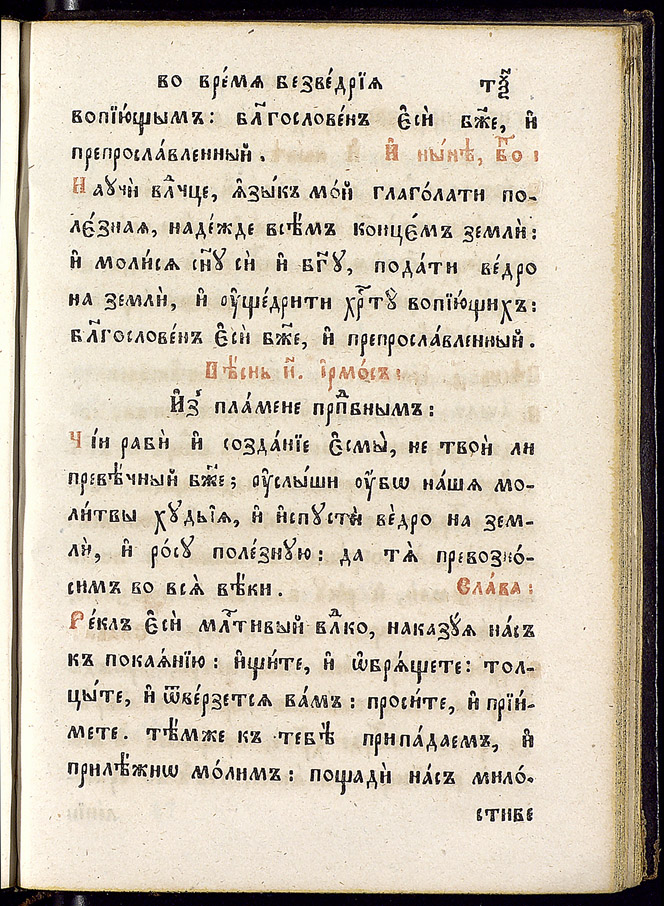 во вре́мѧ безве́дрїѧ тч҃з
вопїю́щымъ: бл҃гослове́нъ є҆сѝ бж҃е, и҆
препросла́вленный. И҆ ны́нѣ, бг҃о:
Наꙋчѝ влⷣчце, ѧ҆зы́къ мо́й глаго́лати по-
ле́знаѧ, наде́жде всѣ́мъ конце́мъ землѝ:
и҆ моли́сѧ сн҃ꙋ сѝ и҆ бг҃ꙋ, пода́ти ве́дро
на землѝ, и҆ ᲂу҆ще́дрити хрⷭ҇тꙋ̀ вопїю́щихъ:
бл҃гослове́нъ є҆сѝ бж҃е, и҆ препросла́вленный.
Пѣ́снь и҃. і҆рмо́съ:
И҆з̾ пла́мене прпⷣбнымъ:
Чїѝ рабѝ и҆ созда́нїе є҆смы̀, не твоѝ ли
превѣ́чный бж҃е; ᲂу҆слы́ши ᲂу҆́бѡ на́шѧ мо-
ли́твы хꙋды́ѧ, и҆ и҆спꙋстѝ ве́дро на зем-
лѝ, и҆ ро́сꙋ поле́знꙋю: да тѧ̀ превозно́-
симъ во всѧ̀ вѣ́ки. Сла́ва:
Ре́клъ є҆сѝ млⷭ҇тивый влⷣко, наказꙋ́ѧ на́съ
къ покаѧ́нїю: и҆щи́те, и҆ ѡ҆брѧ́щете: тол-
цы́те, и҆ ѿве́рзетсѧ ва́мъ: проси́те, и҆ прїи́-
мете. тѣ́мже къ тебѣ̀ припа́даемъ, и҆
прилѣ́жнѡ мо́лимъ: пощадѝ на́съ мило́-
стиве